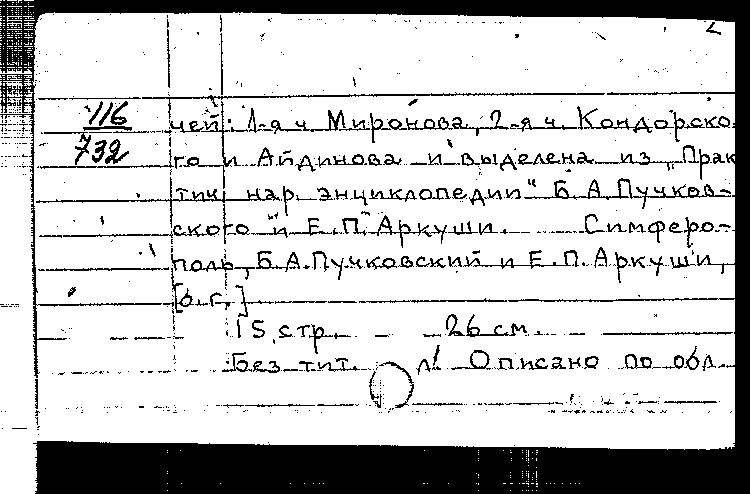 2
116 чей: 1-я ч Миронова, 2-я ч. Кондорско-
732 го и Айдинова и выделена из „Прак
тич нар. энциклопедии" Б. А. Пучков-
ского и Е. П. Аркуши. Симферо-
поль, Б. А. Пучковский и Е. П. Аркуши,
[б. г.]
15 стр. 26 см.
Без тит. л. Описано по обл.